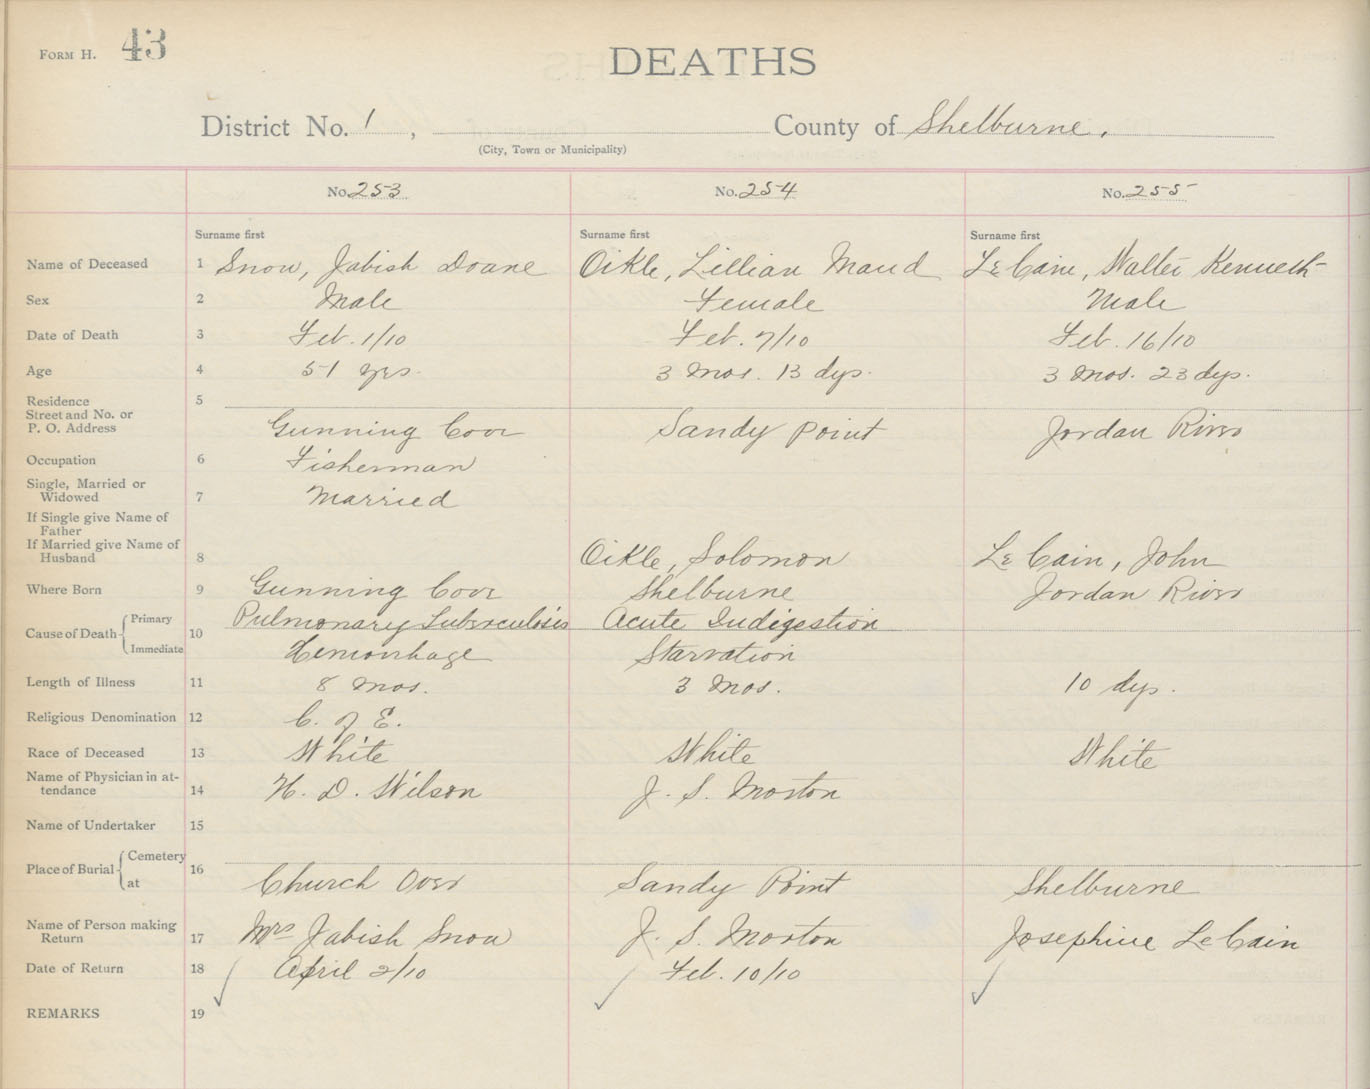 FORM H. 43
DEATHS
District No. 1, County of Shelburne.
(City, Town or Municipality)
No. 253 No. 254 No. 255
Surname first Surname first Surname first
Name of Deceased 1 Snow, Jabish Doane Oikle, Lillian Maud LeCain, Walter Kenneth
Sex 2 Male Female Male
Date of Death 3 Feb. 1/10 Feb. 7/10 Feb. 16/10
Age 4 51 yrs. 3 mos. 13 dys. 3 mos. 23 dys.
Residence 5
Street and No. or
P. O. Address Gunning Cove Sandy Point Jordan River
Occupation 6 Fisherman
Single, Married or
Widowed 7 Married
If Single give Name of
Father
If Married give Name of
Husband 8 Oikle, Solomon LeCain, John
Where Born 9 Gunning Cove Shelburne Jordan River
Primary Pulmonary Tuberculosis Acute Indigestion
Cause of Death 10
Immediate Hemorrhage Starvation
Length of Illness 11 8 mos. 3 mos. 10 dys.
Religious Denomination 12 C. of E.
Race of Deceased 13 White White White
Name of Physician in at-
tendance 14 H. D. Wilson J. S. Morton
Name of Undertaker 15
Cemetery
Place of Burial 16
at Church Over Sandy Point Shelburne
Name of Person making
Return 17 Mrs Jabish Snow J. S. Morton Josephine LeCain
Date of Return 18 April 2/10 Feb. 10/10
REMARKS 19